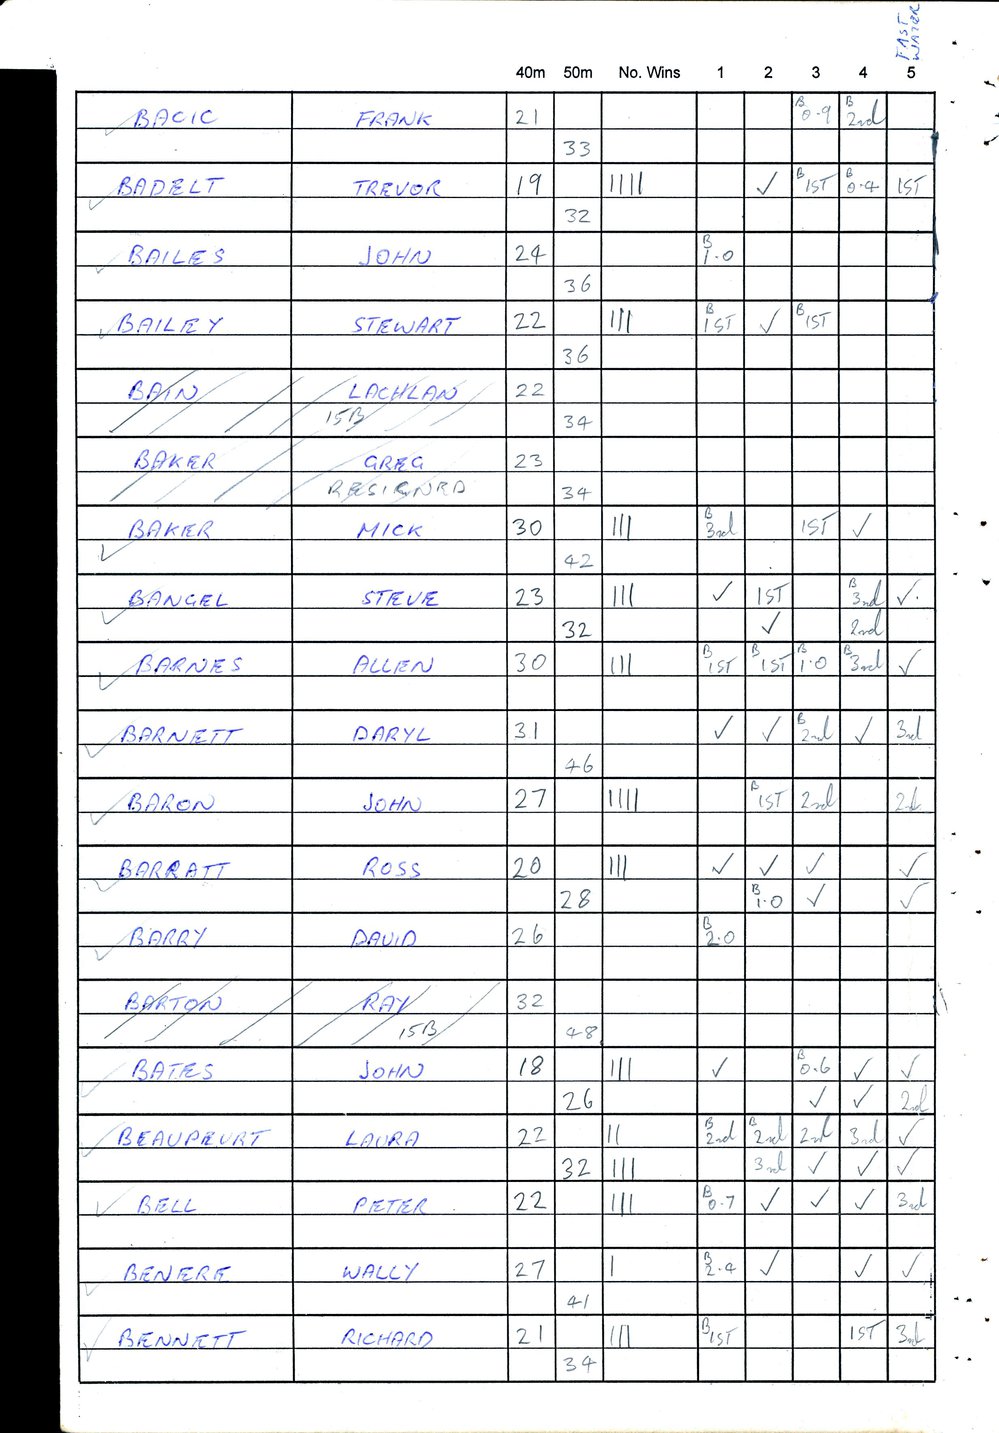 FAST WATER
40m 50m No. Wins 1 2 3 4 5
BACIC FRANK 21 B 0.9 B 2nd
33
BADELT TREVOR 19 |||| ✓ B 1ST B 0.4 1ST
32
BAILES JOHN 24 B 1.0
36
BAILEY STEWART 22 ||| B 1ST ✓ B 1ST
36
BAIN LACHLAN 22
15B 34
BAKER GREG 23
RESIGNED 34
BAKER MICK 30 ||| B 3rd 1ST ✓
42
BANGEL STEVE 23 ||| ✓ 1ST B 3rd ✓
32 ✓ 2nd
BARNES ALLEN 30 ||| B 1ST B 1ST B 1.0 B 3rd ✓
BARNETT DARYL 31 ✓ ✓ B 2nd ✓ 3rd
46
BARON JOHN 27 |||| B 1ST 2nd
BARRATT ROSS 20 ||| ✓ ✓ ✓ ✓
28 B 1.0 ✓ ✓
BARRY DAVID 26 B 2.0
BARTON RAY 32
15B 48
BATES JOHN 18 ||| ✓ B 0.6 ✓ ✓
26 ✓ ✓ 2nd
BEAUPEURT LAURA 22 || B 2nd B 2nd 2nd 3rd ✓
32 ||| 3rd ✓ ✓ ✓
BELL PETER 22 ||| B 0.7 ✓ ✓ ✓ 3rd
BENERE WALLY 27 | B 2.4 ✓ ✓ ✓
41
BENNETT RICHARD 21 ||| B 1ST 1ST 3rd
34